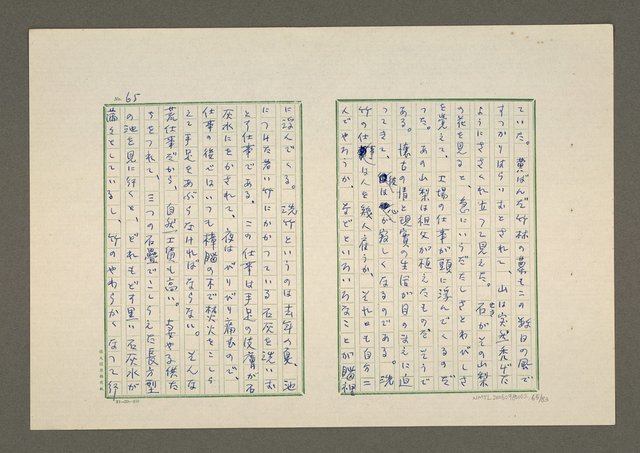 ていた。黄ばんだ竹林の葉もこの数日の風で
すつかりはらいおとされて、山は突然禿げた
ようにささくれ立つて見えた。石がその山梨
の花を見ると、急にいうだたしさとわびしさ
を覚えて、工場の仕事が頭に浮んでくるのだ
つた。あの山梨は祖父が植えたものだそうで
ある。懐古の情と現実の生活が目のまえに迫
つてきて、後は心が寂しくなるのである。洗
竹の仕事は人を幾人雇うか、それとも自分二
人でやろうか、などといろいろなことが脳裡
No. 65
に浮んでくる。洗竹というのは去年の夏、池
につけた若い竹にかかつている石灰を洗いお
とす仕事である。この仕事は手足の皮膚が石
灰水にをかされて、夜はぴりぴり痛むので、
仕事の後ではいつも樟脳の木で焚火をこしら
えて手足をあぶらなければならない。そんな
荒仕事だから、自然工賃も高い。妻や子供た
ちをつれて、三つの石疊でこしらえた長方型
の池を見に行くと、どれもどす黒い石灰水が
満々としているし、竹のやわらかくなつて行
NMTL 65/83